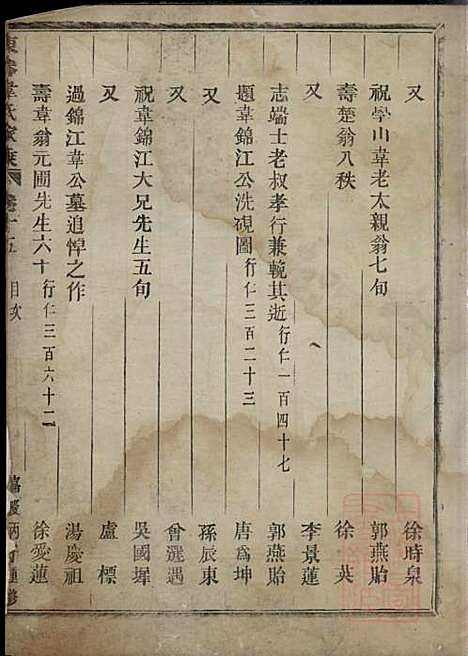 又 徐時泉
祝學山韋老太親翁七旬 郭燕貽
壽楚翁八秩 徐英
又 李景蓮
志端士老叔孝行兼輓其逝 行仁一百四十七 郭燕貽
題韋錦江公洗硯圖 行仁三百二十三 唐為坤
又 孫辰東
又 曾選遇
祝韋錦江大兄先生五旬 吳國墀
又 盧標
過錦江韋公墓追悼之作 湯慶祖
壽韋翁元圃先生六十 行仁三百六十二 徐愛蓮
韋氏家乘 卷十五 目次 嘉慶丙 重修